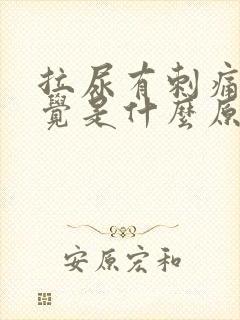 拉尿有刺痛
覺是什麼原
安原宏和